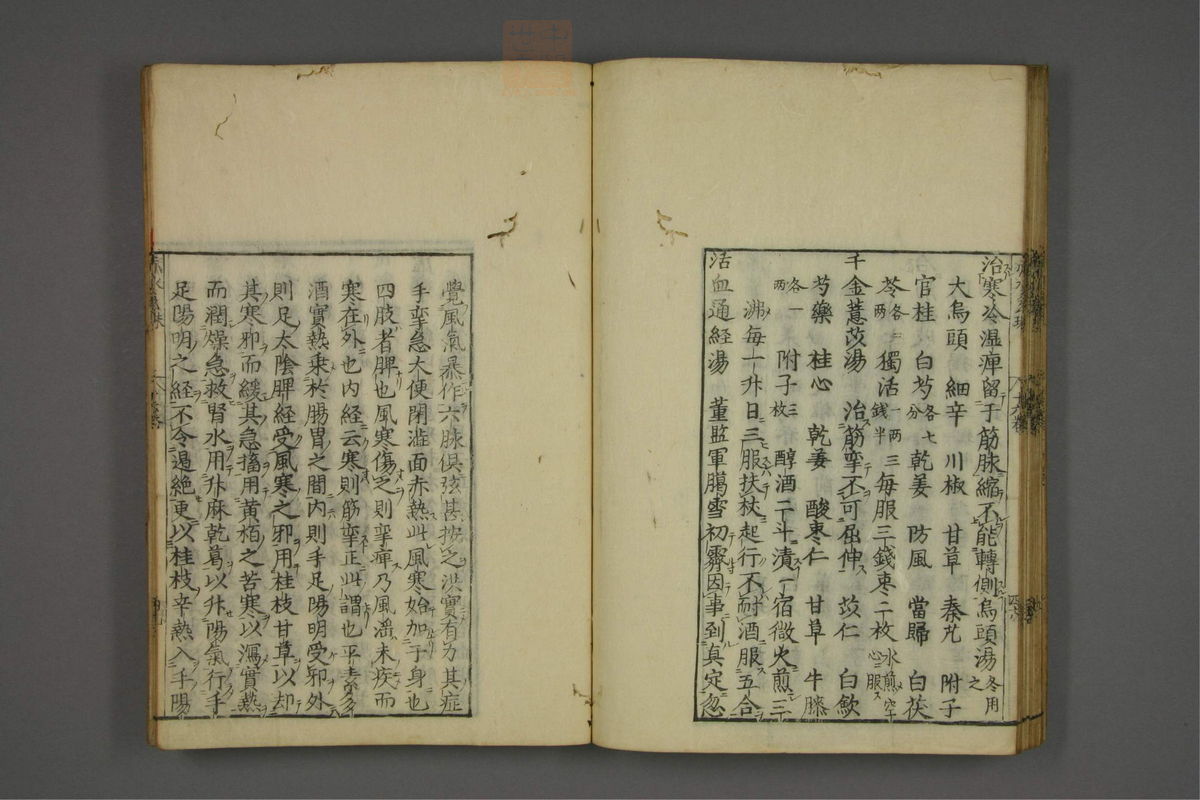 治寒冷湿痺留于筋脉縮不能轉側烏頭湯冬用之
大烏頭 細辛 川椒 甘草 秦艽 附子
官桂 白芍各七分 乾姜 防風 當歸 白茯
苓各一兩 獨活一兩三錢半 每服三錢棗二枚水煎空心服
千金薏苡湯 治筋攣不可屈伸 苡仁 白歛
芍藥 桂心 乾姜 酸棗仁 甘草 牛膝
各一兩 附子三枚 醇酒二斗漬一宿微火煎三
沸每一升日三服扶杖起行不耐酒服五合
活血通経湯 董監軍臈雪初霽因事到真定忽
覺風氣暴作六脉俱弦甚按之洪實有力其症
手攣急大便閉澁面赤熱此風寒始加于身也
四肢者脾也風寒傷之則攣痺乃風滛末疾而
寒在外也内経云寒則筋攣正此謂也平素多
酒實熱乗於腸胃之間内則手足陽明受邪外
則足太陰脾經受風寒之邪用桂枝甘草以却
其寒邪而緩其急搐用黄栢之苦寒以瀉實熱
而潤燥急救腎水用升麻乾葛以升陽氣行手
足陽明之経不令遏絶更以桂枝辛熱入手陽